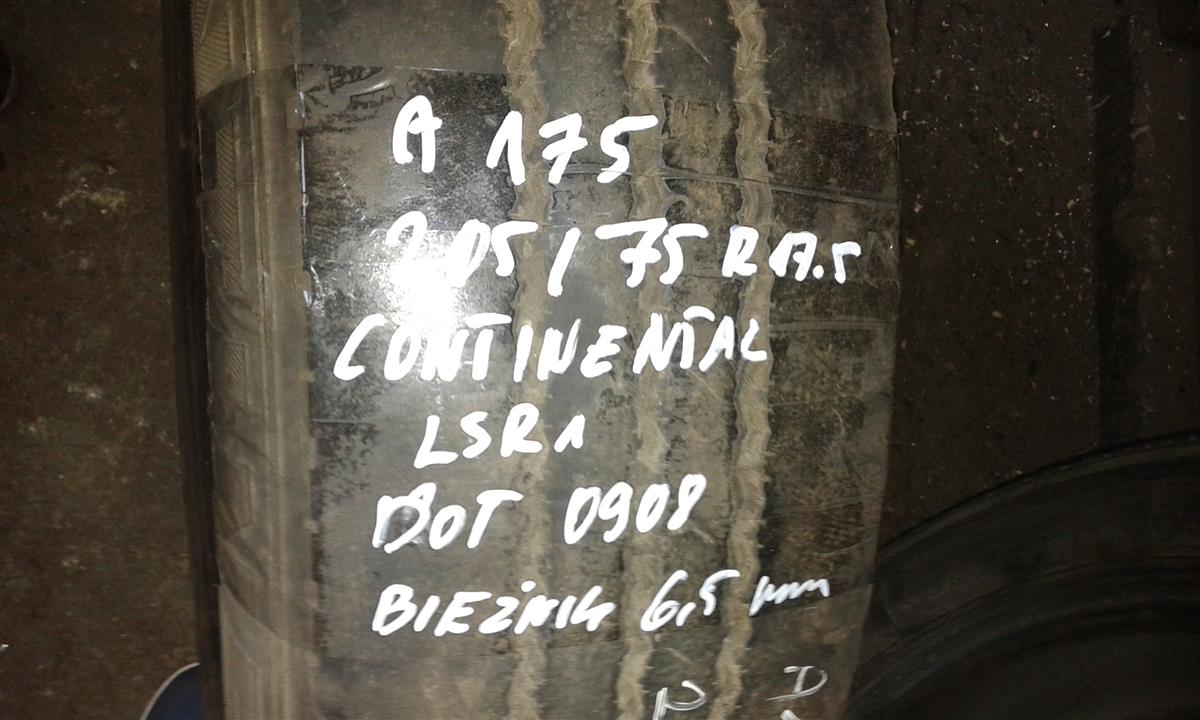 A 175
205/75 R17.5
CONTINENTAL
LSR1
DOT 0908
BIEŻNIK 6,5 mm
P D